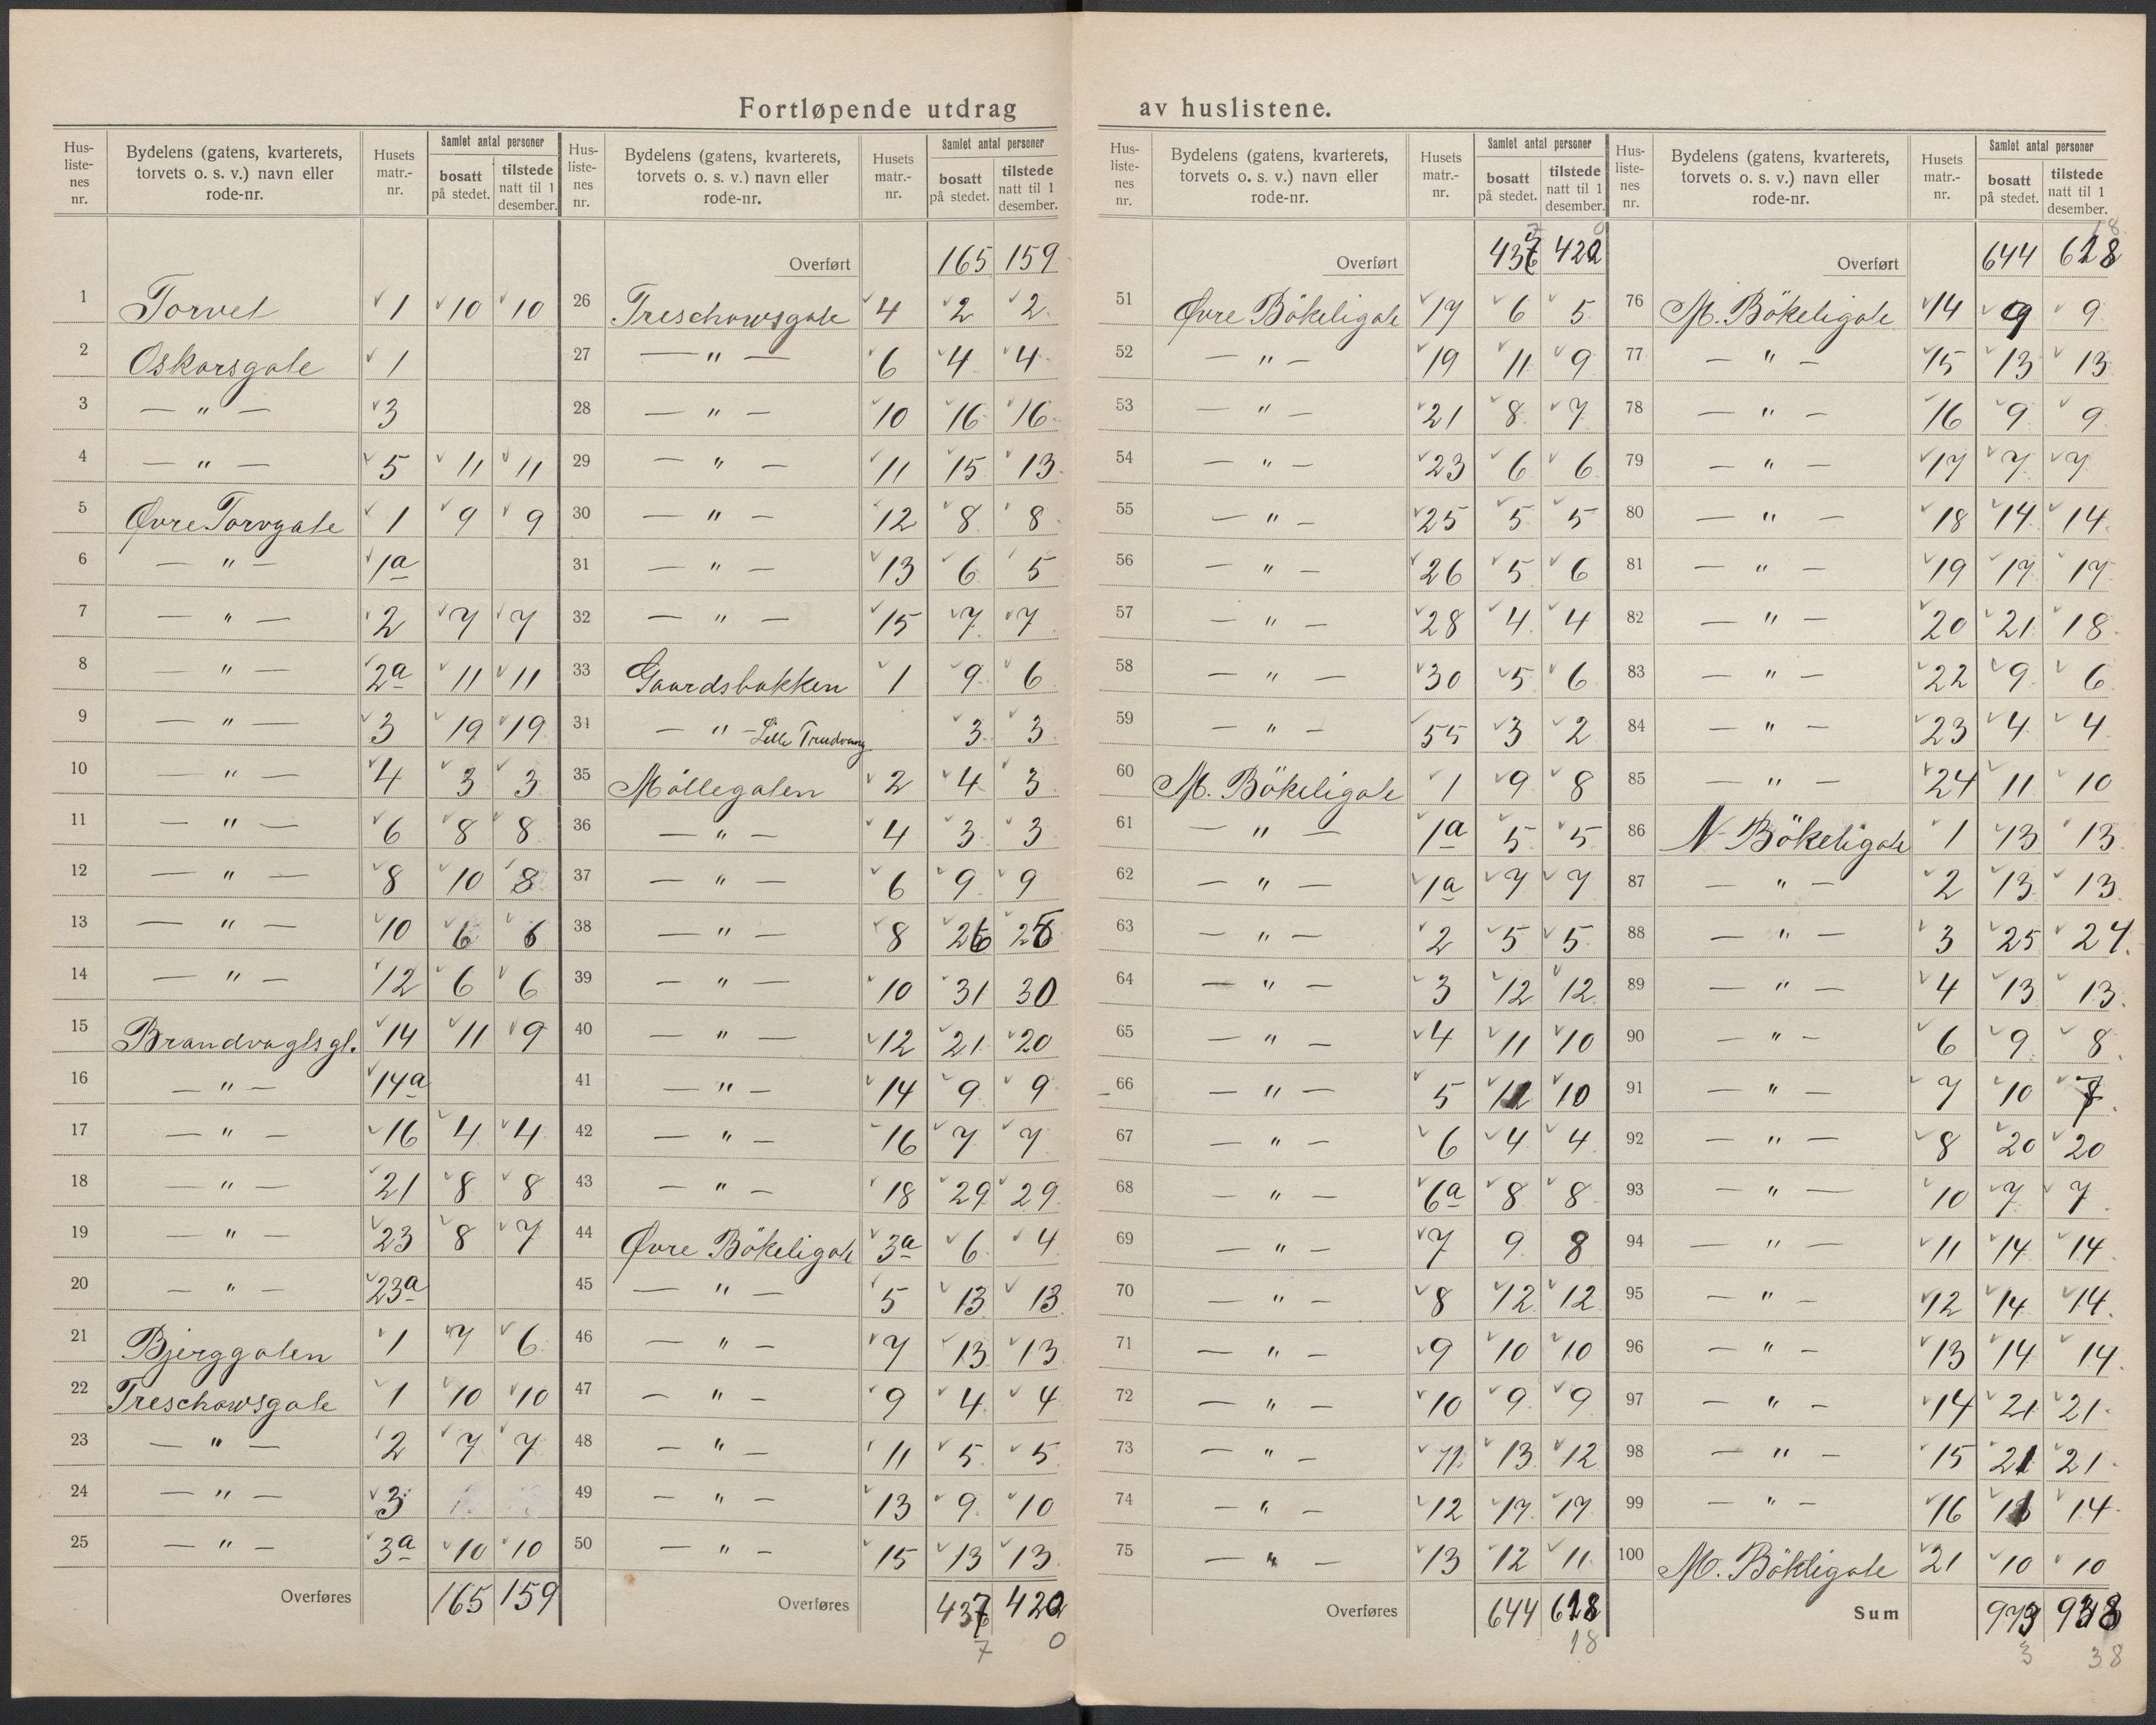 Fortløpende utdrag av huslistene.
Hus-listenes nr. | Bydelens (gatens, kvarterets, torvets o. s. v.) navn eller rode-nr. | Husets matr.-nr. | Samlet antal personer bosatt på stedet. | tilstede natt til 1 desember.
1 Torvet 1 10 10
2 Oskarsgate 1
3 — " — 3
4 — " — 5 11 11
5 Øvre Torvgate 1 9 9
6 — " — 1a
7 — " — 2 7 7
8 — " — 2a 11 11
9 — " — 3 19 19
10 — " — 4 3 3
11 — " — 6 8 8
12 — " — 8 10 8
13 — " — 10 6 6
14 — " — 12 6 6
15 Brandvagtsgt. 14 11 9
16 — " — 14a
17 — " — 16 4 4
18 — " — 21 8 8
19 — " — 23 8 7
20 — " — 23a
21 Bjerggaten 1 7 6
22 Treschowsgate 1 10 10
23 — " — 2 7 7
24 — " — 3
25 — " — 3a 10 10
Overføres 165 159
Hus-listenes nr. | Bydelens (gatens, kvarterets, torvets o. s. v.) navn eller rode-nr. | Husets matr.-nr. | Samlet antal personer bosatt på stedet. | tilstede natt til 1 desember.
Overført 165 159
26 Treschowsgate 4 2 2
27 — " — 6 4 4
28 — " — 10 16 16
29 — " — 11 15 13
30 — " — 12 8 8
31 — " — 13 6 5
32 — " — 15 7 7
33 Gaardsbakken 1 9 6
34 — " — Lille Trudvang 3 3
35 Möllegaten 2 4 3
36 — " — 4 3 3
37 — " — 6 9 9
38 — " — 8 26
39 — " — 10 31 30
40 — " — 12 21 20
41 — " — 14 9 9
42 — " — 16 7 7
43 — " — 18 29 29
44 Øvre Bökeligate 3a 6 4
45 — " — 5 13 13
46 — " — 7 13 13
47 — " — 9 4 4
48 — " — 11 5 5
49 — " — 13 9 10
50 — " — 15 13 13
Overføres 437 420
7 0
Hus-listenes nr. | Bydelens (gatens, kvarterets, torvets o. s. v.) navn eller rode-nr. | Husets matr.-nr. | Samlet antal personer bosatt på stedet. | tilstede natt til 1 desember.
7 0
Overført 437 420
51 Øvre Bökeligate 17 6 5
52 — " — 19 11 9
53 — " — 21 8 7
54 — " — 23 6 6
55 — " — 25 5 5
56 — " — 26 5 6
57 — " — 28 4 4
58 — " — 30 5 6
59 — " — 55 3 2
60 M. Bökeligate 1 9 8
61 — " — 1a 5 5
62 — " — 1a 7 7
63 — " — 2 5 5
64 — " — 3 12 12
65 — " — 4 11 10
66 — " — 5 10
67 — " — 6 4 4
68 — " — 6a 8 8
69 — " — 7 9 8
70 — " — 8 12 12
71 — " — 9 10 10
72 — " — 10 9 9
73 — " — 11 13 12
74 — " — 12 17 17
75 — " — 13 12 11
Overføres 644 618
18
Hus-listenes nr. | Bydelens (gatens, kvarterets, torvets o. s. v.) navn eller rode-nr. | Husets matr.-nr. | Samlet antal personer bosatt på stedet. | tilstede natt til 1 desember.
18
Overført 644 618
76 M. Bökeligate 14 9 9
77 — " — 15 13 13
78 — " — 16 9 9
79 — " — 17 7 7
80 — " — 18 14 14
81 — " — 19 17 17
82 — " — 20 21 18
83 — " — 22 9 6
84 — " — 23 4 4
85 — " — 24 11 10
86 N. Bökeligate 1 13 13
87 — " — 2 13 13
88 — " — 3 25 24
89 — " — 4 13 13
90 — " — 6 9 8
91 — " 7 10
92 — " — 8 20 20
93 — " — 10 7 7
94 — " — 11 14 14
95 — " — 12 14 14
96 — " — 13 14 14
97 — " — 14 21 21
98 — " — 15 21 21
99 — " — 16 14
100 M. Bökeligate 21 10 10
Sum 973 938
3 38